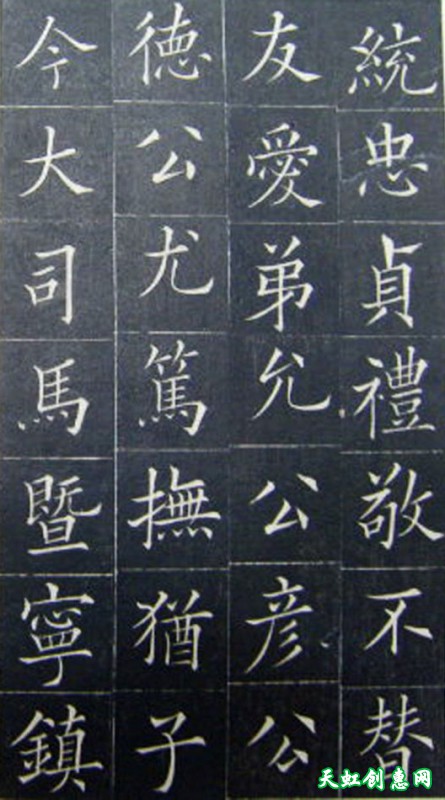 統忠貞禮敬不替
友愛弟允公彦公
徳公尤篤撫猶子
今大司馬暨寧鎮
天虹创惠网